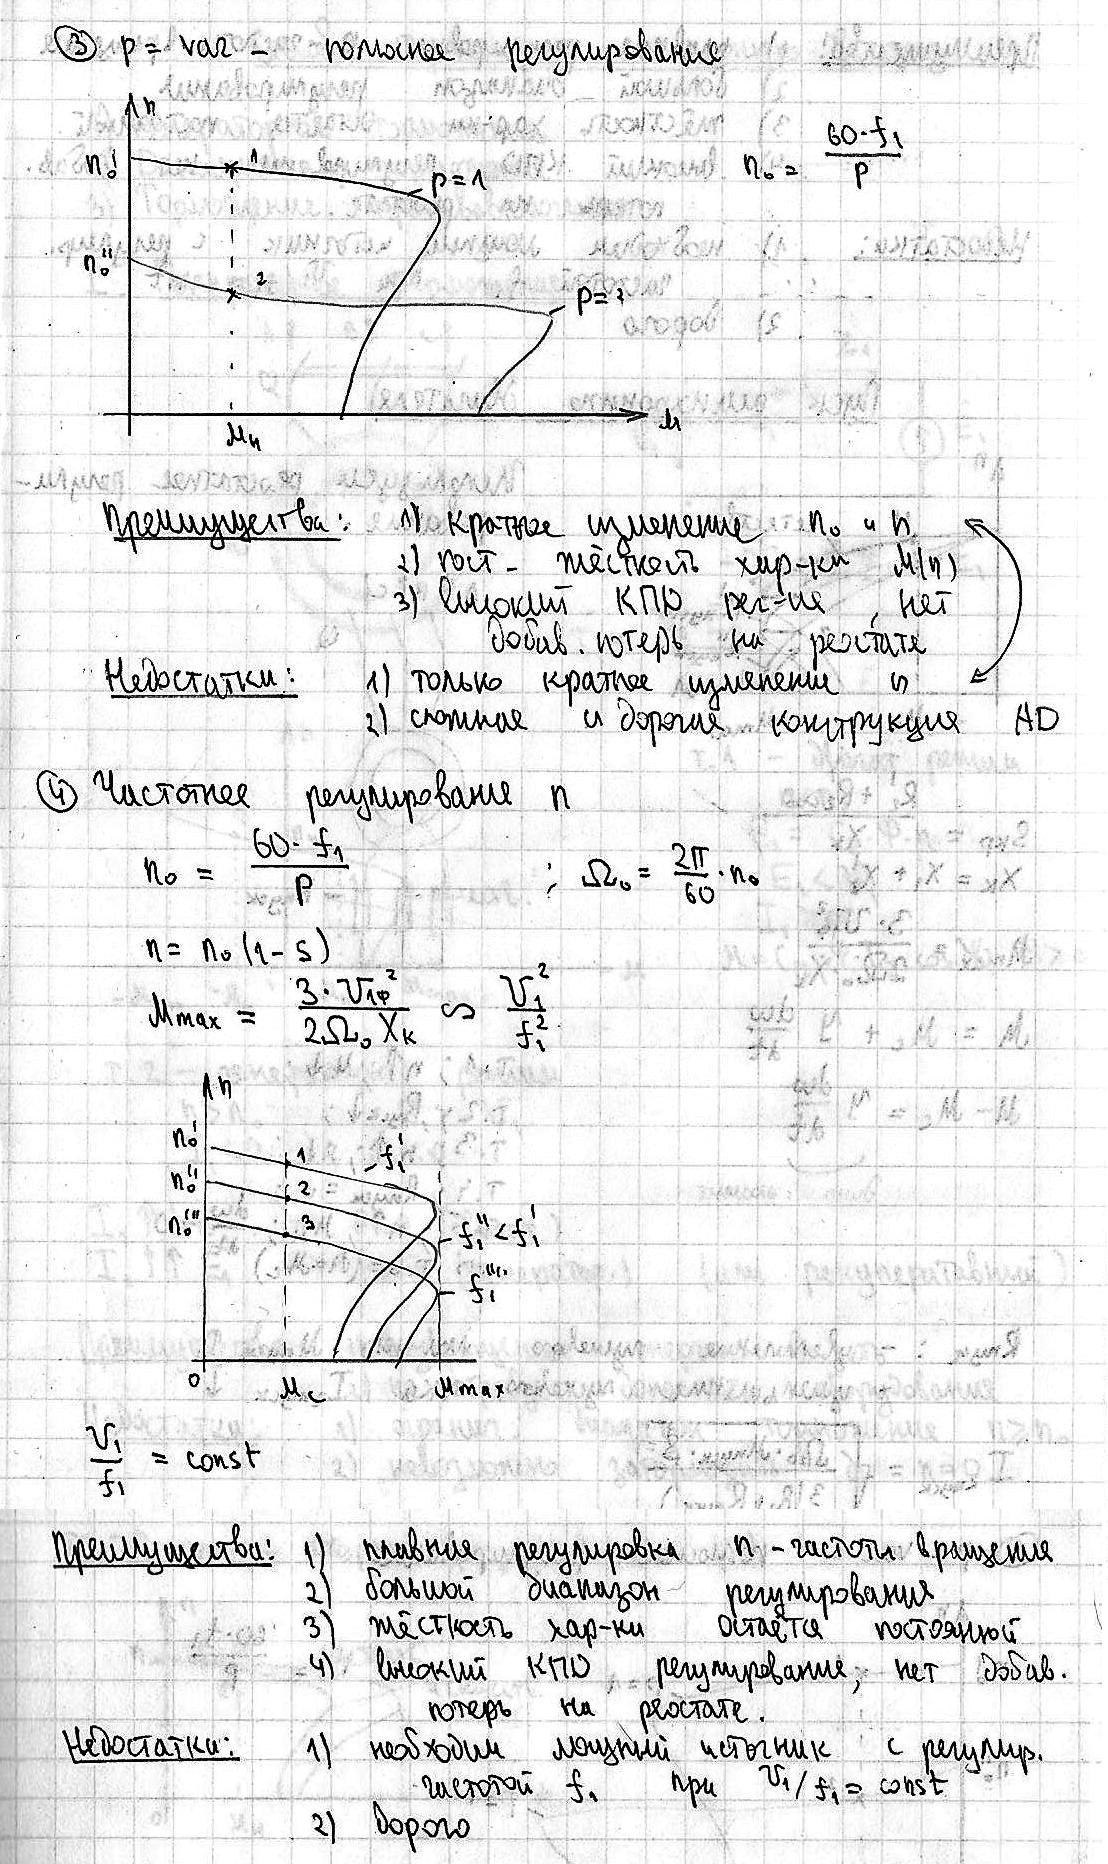 ③ p = var – полюсное регулирование
n
n₀'
1
p=1
n₀ = 60·f₁ / p
n₀''
2
p=2
Mн
M
Преимущества: 1) кратное изменение n₀ и n
2) пост. жёсткость хар-ки M(n)
3) высокий КПД рег-ия, нет
добав. потерь на реостате
Недостатки: 1) только кратное изменение n
2) сложная и дорогая конструкция АД
④ Частотное регулирование n
n₀ = 60·f₁ / p ; Ω₀ = 2π/60 · n₀
n = n₀(1-s)
Mmax = 3·U₁ф² / 2Ω₀Xк ∽ U₁² / f₁²
n
n₀' 1 f₁'
n₀'' 2
n₀''' 3 f₁'' < f₁'
f₁'''
0 Mc Mmax
U₁/f₁ = const
Преимущества: 1) плавная регулировка n – частоты вращения
2) большой диапазон регулирования
3) жёсткость хар-ки остаётся постоянной
4) высокий КПД регулирование, нет добав.
потерь на реостате.
Недостатки: 1) необходим мощный источник с регулир.
частотой f₁ при U₁/f₁ = const
2) дорого